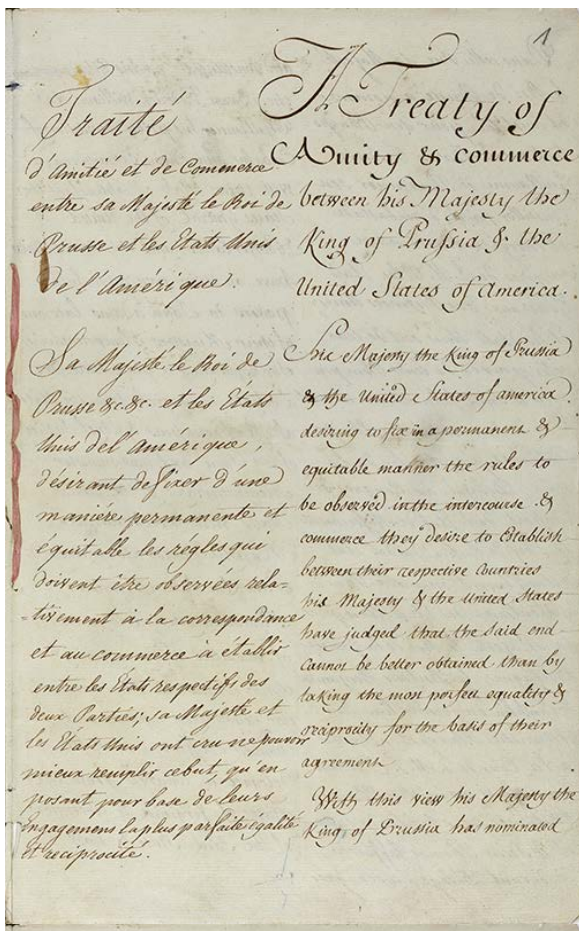 1
Traité
d'Amitié et de Commerce
entre sa Majesté le Roi de
Prusse et les Etats Unis
de l'Amérique.
Sa Majesté le Roi de
Prusse &c. &c. et les États
Unis de l'amérique,
désirant de fixer d'une
maniére permanente et
équitable les régles qui
doivent être observées rela-
-tivement à la correspondance
et au commerce à établir
entre les Etats respectifs des
deux Parties; sa Majesté et
les Etats Unis ont cru ne pouvoir
mieux remplir ce but, qu'en
posant pour base de leurs
Engagemens la plus parfaite égalité
et reciprocité.
A Treaty of
Amity & Commerce
between his Majesty the
King of Prussia & the
United States of America.
His Majesty the King of Prussia
& the United States of america,
desiring to fix in a permanent &
equitable manner the rules to
be observed in the intercourse &
commerce they desire to Establish
between their respective Countries
his Majesty & the United States
have judged that the said end
cannot be better obtained than by
taking the most perfect equality &
reciprocity for the basis of their
agreement.
With this view his Majesty the
King, of Prussia has nominated